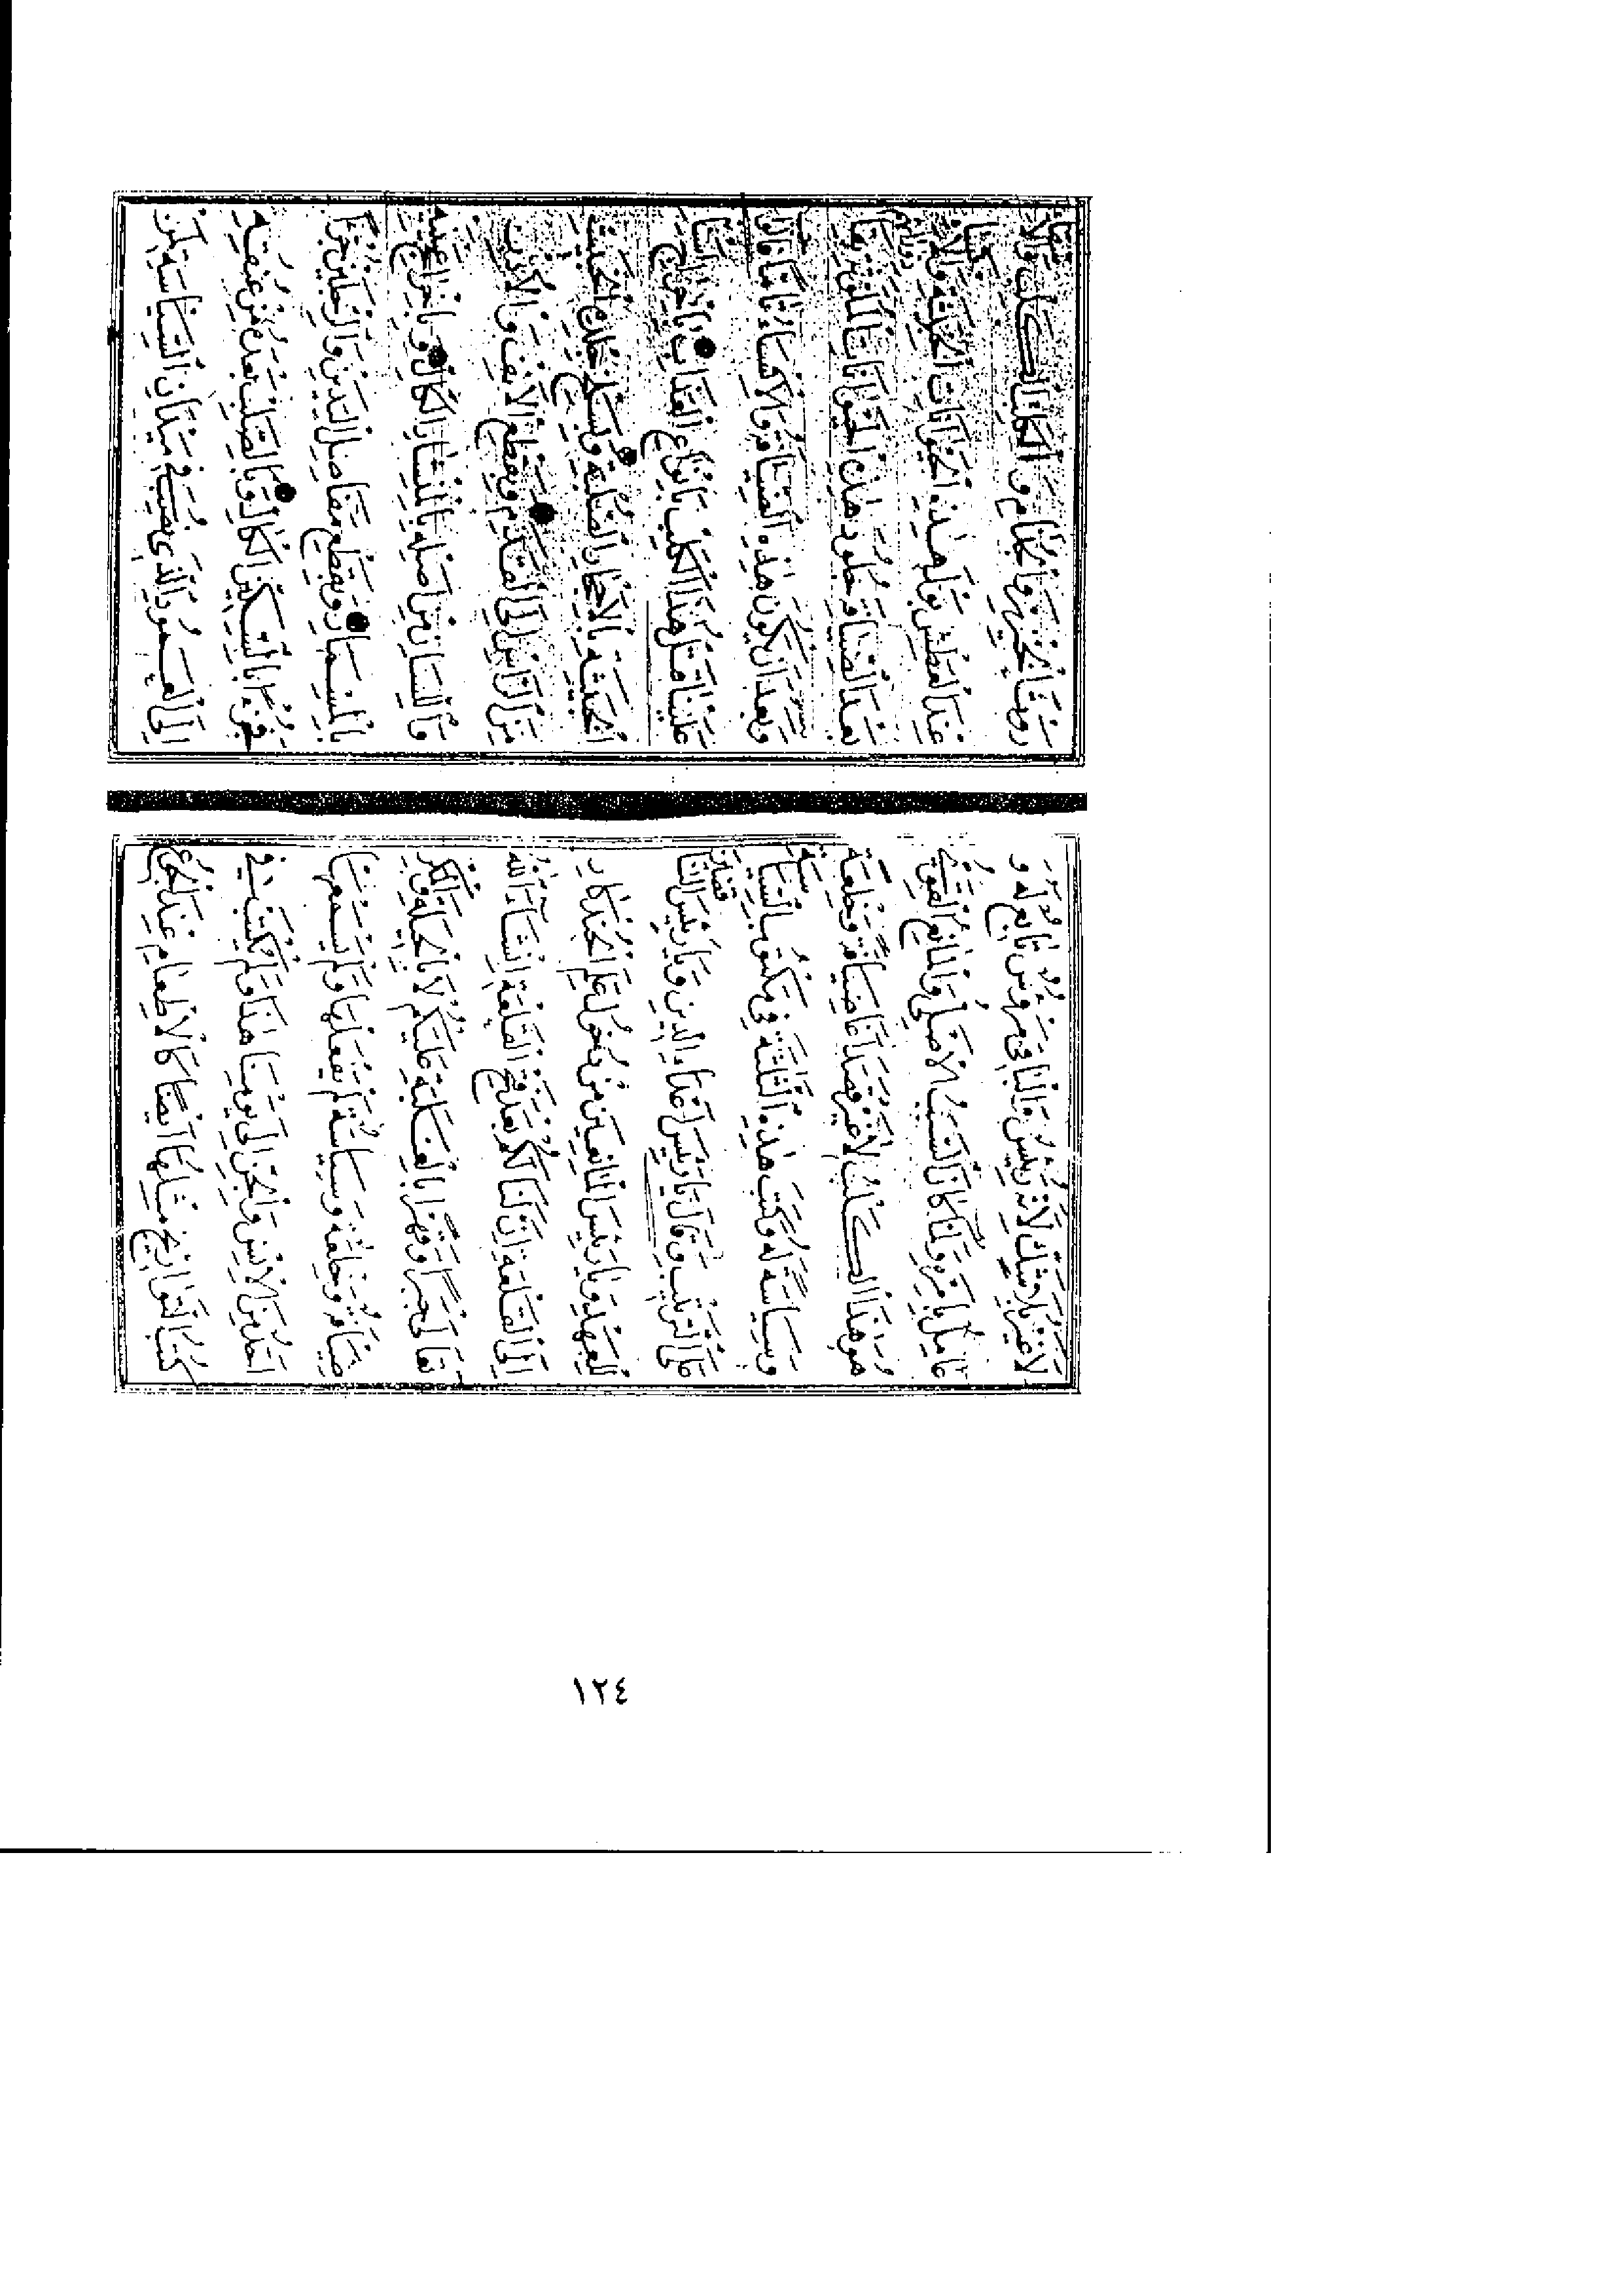 لَاغَيْرُ بِلَا شَكٍّ لِأَنَّهُ رَئِيسٌ وَالْبَاقِي مَرْءُوسٌ تَابِعٌ لَهُ وَ
عَامِلٌ بِأَمْرِهِ وَلَمَّا كَانَ السَّبَبُ الْأَصْلِيُّ وَالْمَانِعُ الْقَوِيُّ
هُوَ هَذَا الْكَلْبُ لَاغَيْرُ قَصَدْنَا ضِيَافَةً وَخِلْعَةً
وَسِيَاسَةً لَهُ وَكَتَبَ هَذِهِ الثَّلَثَةَ فِي مَكْتُوبِ السِّيَاسَةِ
عَلَى التَّرْتِيبِ وَقَالَ يَا رَئِيسَ أَعْدَاءِ الدِّينِ وَيَا رَئِيسَ النَّاقِضِينَ
لِلْعَهْدِ وَيَا رَئِيسَ الْمَانِعِينَ مِنْ دُخُولِ عَلَمِ الْخُنْدِكَارِ
إِلَى الْقَلْعَةِ إِنَّ لَنَا لَكُمْ بَعْدَ فَتْحِ الْقَلْعَةِ إِنْشَاءَ اللهُ
تَعَالَى جَبْرًا وَقَهْرًا بِالْغَلَبَةِ عَلَيْكُمْ لَا بِالْحِيلَةِ وَالْمَكْرِ
ضِيَافَةً وَخِلْعَةً وَسِيَاسَةً لَمْ يَفْعَلْهَا وَلَمْ يَسْمَعْهَا
أَحَدٌ مِنَ الْإِنْسِ وَالْجِنِّ إِلَى يَوْمِنَا هَذَا وَلَمْ يُكْتَبْ فِي
كُتُبِ التَّوَارِيخِ مِثْلُهَا أَيْضًا كَالْإِطْعَامِ عِنْدَ الْجُوعِ
رَوْثَ الْخِنْزِيرِ وَالْحِمَارِ وَالْكَلْبِ
عِنْدَ الْعَطَشِ بَوْلَ هَذِهِ الْحَيَوَانَاتِ
بَعْدَ الضِّيَافَةِ جُلُودَ هَذِهِ الْحَيَوَانَاتِ
وَبَعْدَ أَنْ يَكُونَ هَذِهِ الضِّيَافَةُ وَالْإِكْسَاءُ تَمَامًا
عَلَيْنَا قَتْلُ هَذَا الْكَلْبِ بِأَنْوَاعِ الْعَذَابِ
الْخَبِيثَةِ بِالْأَحْجَارِ الصُّلْبَةِ وَسَلْخِ الْخَبِيثِ
مِنَ الرَّأْسِ إِلَى الْقَدَمِ وَقَطْعِ الْأَنْفِ وَالْأُذُنِ
وَاللِّسَانِ مِنْ أَصْلِهِ بِالْمِنْشَارِ الْكَالِّ وَإِخْرَاجِ عَيْنَيْهِ
بِالْمِسْمَارِ وَقَطْعِ مَفَاصِلِ الْيَدَيْنِ وَالرِّجْلَيْنِ جُزْءًا
جُزْءًا بِالسِّكِّينِ الْكَالِّ وَالصَّلْبِ بَعْدَهُ مِنْ عُنُقِهِ
إِلَى الْعَمُودِ الَّذِي نُصِبَ فِي مَيْدَانِ السِّيَاسَةِ لِمَنْ
١٢٤